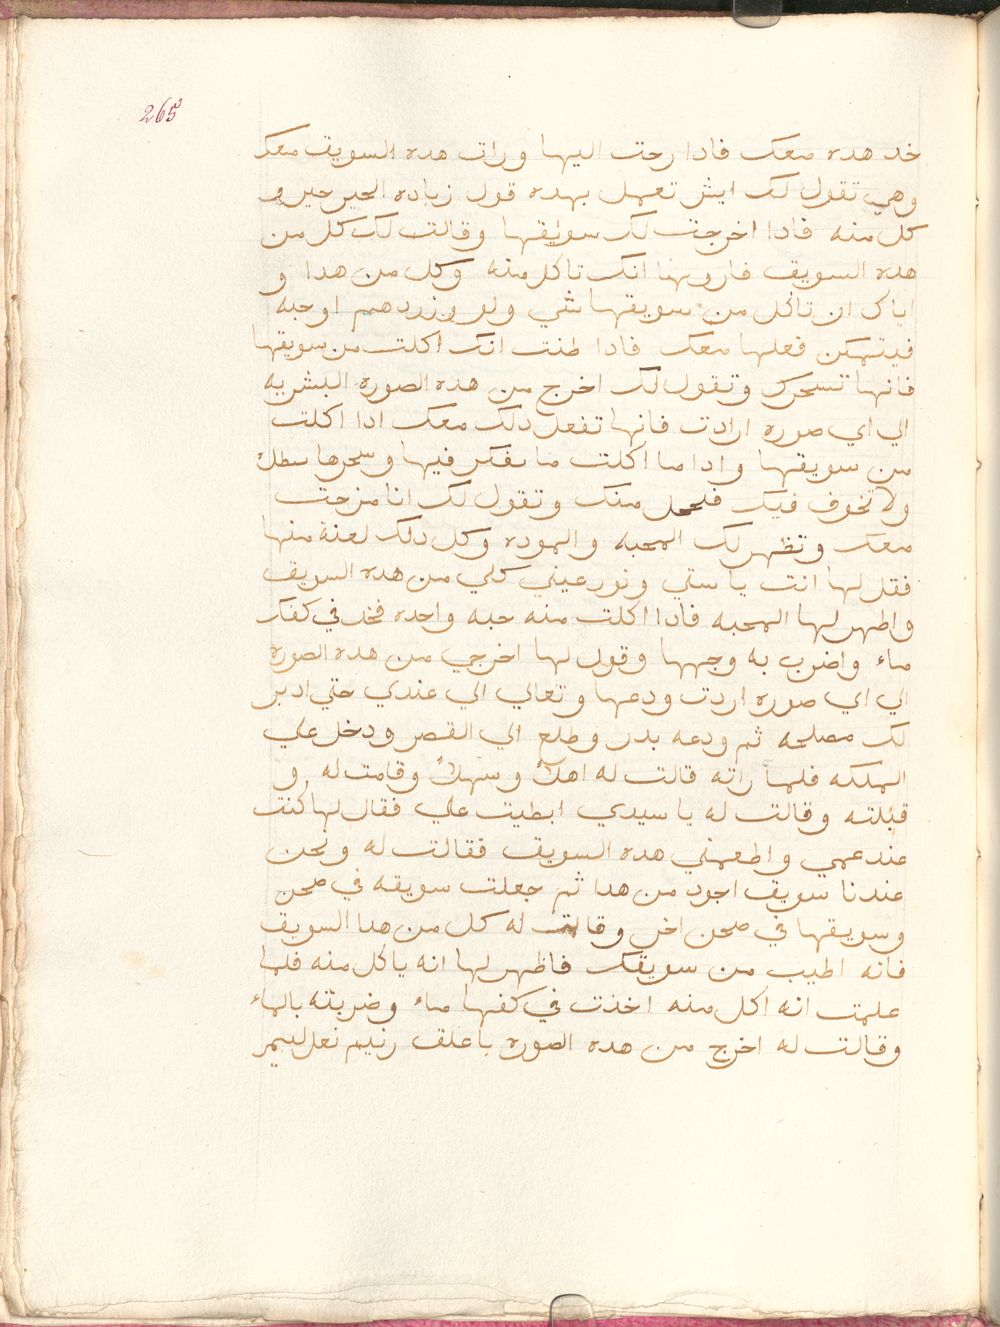 265
خد هده معك فادا رحت اليها ورات هده السويق معك
وهي تقول لك ايش تعمل بهده قول زياده الخير خير و
كل منه فادا اخرجت لك سويقها وقالت لك كل من
هده السويق فاروبها انك تاكل منه وكل من هدا و
اياك ان تاكل من سويقها شي ولو وزن درهم او حبه
فيتمكن فعلها معك فادا ظنت انك اكلت من سويقها
فانها تسحرك وتقول لك اخرج من هده الصوره البشريه
الي اي صوره ارادت فانها تفعل دلك معك ادا اكلت
من سويقها وادا ما اكلت ما يفكر فيها وسحرها يبطل
ولا تخوف فيك فتخجل منك وتقول لك انا مزحت
معك وتظهر لك المحبه والموده وكل دلك لعنة منها
فقل لها انت يا ستي ونور عيني كلي من هده السويق
واظهر لها المحبه فادا اكلت منه حبه واحده فخد في كفك
ماء واضرب به وجهها وقول لها اخرجي من هده الصوره
الي اي صوره اردت ودعها وتعالي الي عندي حتي ادبر
لك مصلحه ثم ودعه بدر وطلع الي القصر ودخل علي
الملكه فلما راته قالت له اهلا وسهلا وقامت له و
قبلته وقالت له يا سيدي ابطيت علي فقال لها كنت
عند عمي واطعمني هده السويق فقالت له ونحن
عندنا سويق اجود من هدا ثم جعلت سويقه في صحن
وسويقها في صحن اخر وقالت له كل من هدا السويق
فانه اطيب من سويقك فاظهر لها انه ياكل منه فلما
علمت انه اكل منه اخدت في كفها ماء وضربته بالماء
وقالت له اخرج من هده الصوره يا علق زنيم نعل لييم